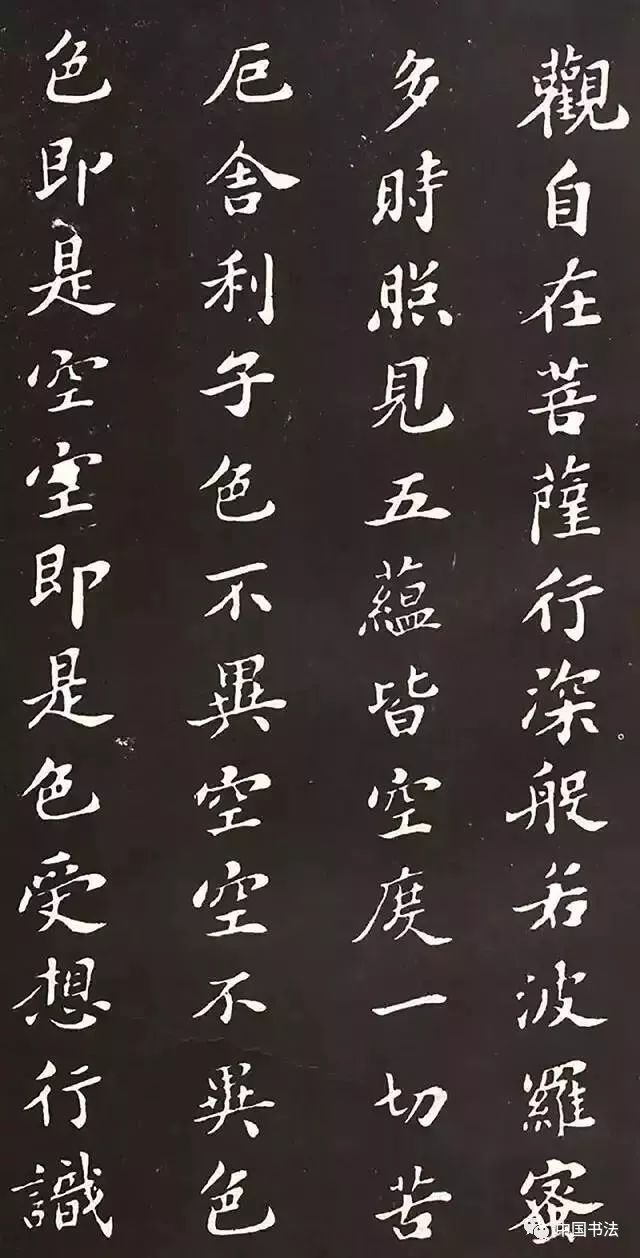 觀自在菩薩行深般若波羅蜜
多時照見五蘊皆空度一切苦
厄舍利子色不異空空不異色
色即是空空即是色受想行識
中国书法